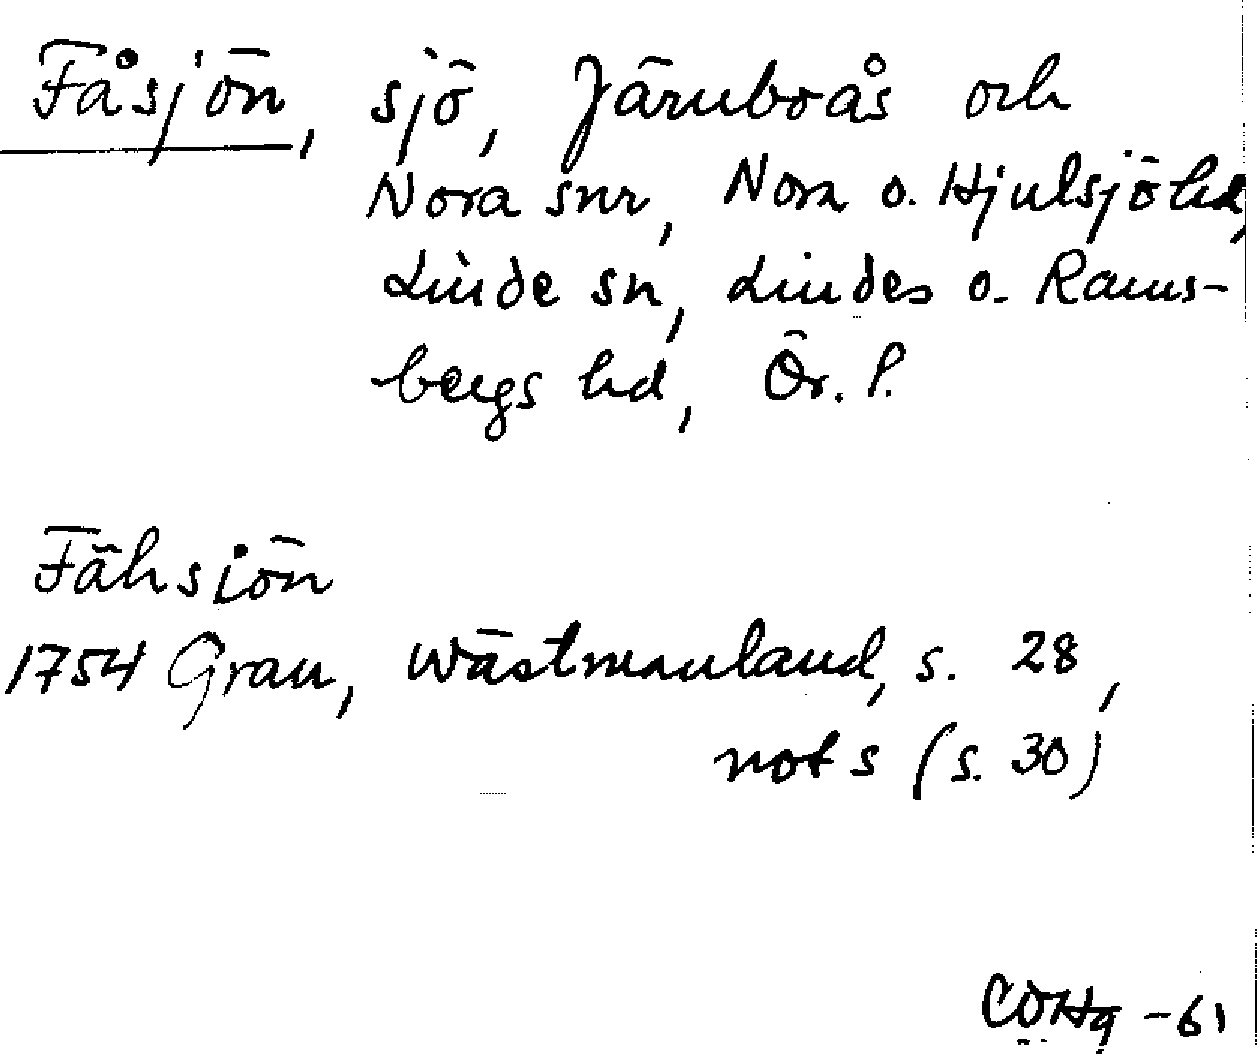 Fåsjön, sjö, Järnboås och
Nora snr, Nora o. Hjulsjö hd,
Linde sn, Lindes o. Rams-
bergs hd, Ör. l.
Fähsiön
1754 Grau, Wästmanland, s. 28,
not s (s. 30)
COHq -61